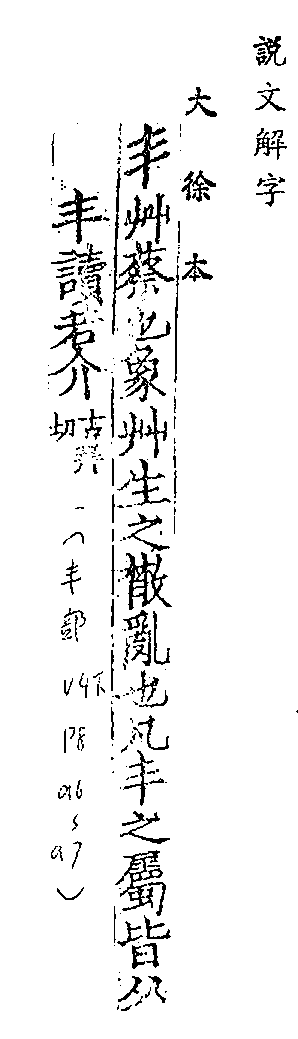 説文解字
大徐本
丰艸蔡也象艸生之散亂也凡丰之屬皆从
丰讀若介古拜切
(丰部 V4下 P8 a6~a7)